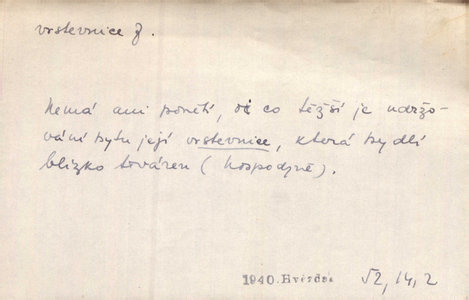 vrstevnice ž.
Nemá ani ponětí, oč co těžší je udržo-
vání bytu její vrstevnice, která bydlí
blízko továren (hospodyně).
1940. Hvězda √2, 14, 2